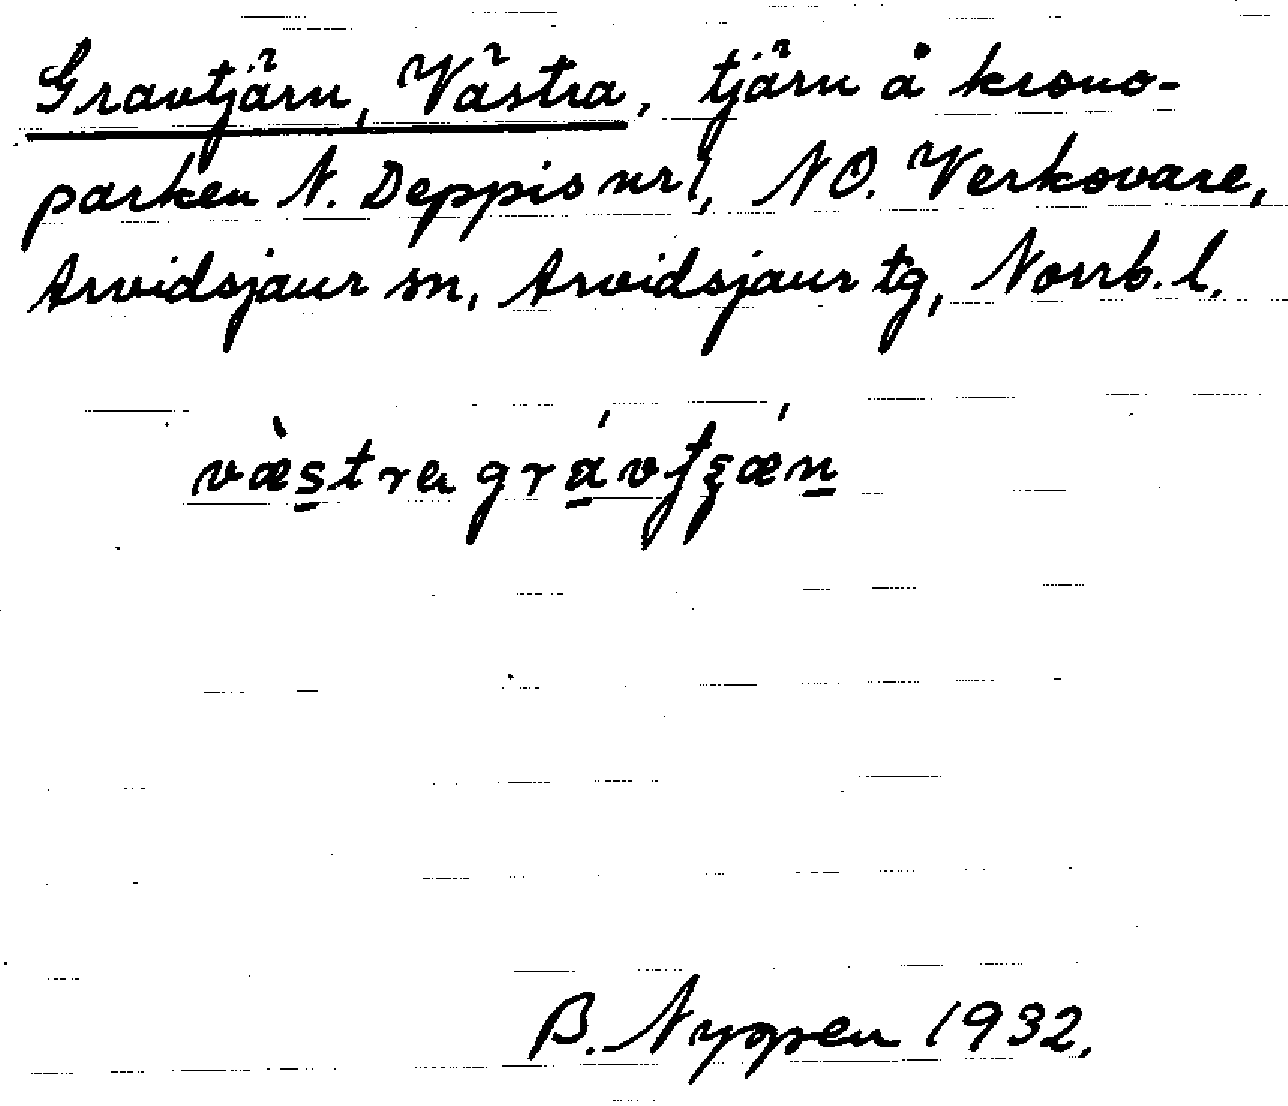 Gravtjärn, Västra, tjärn å krono-
parken N. Deppis nr 1, NO. Verkovare,
Arvidsjaur sn, Arvidsjaur tg, Norrb. l.
B. Nygren 1932.